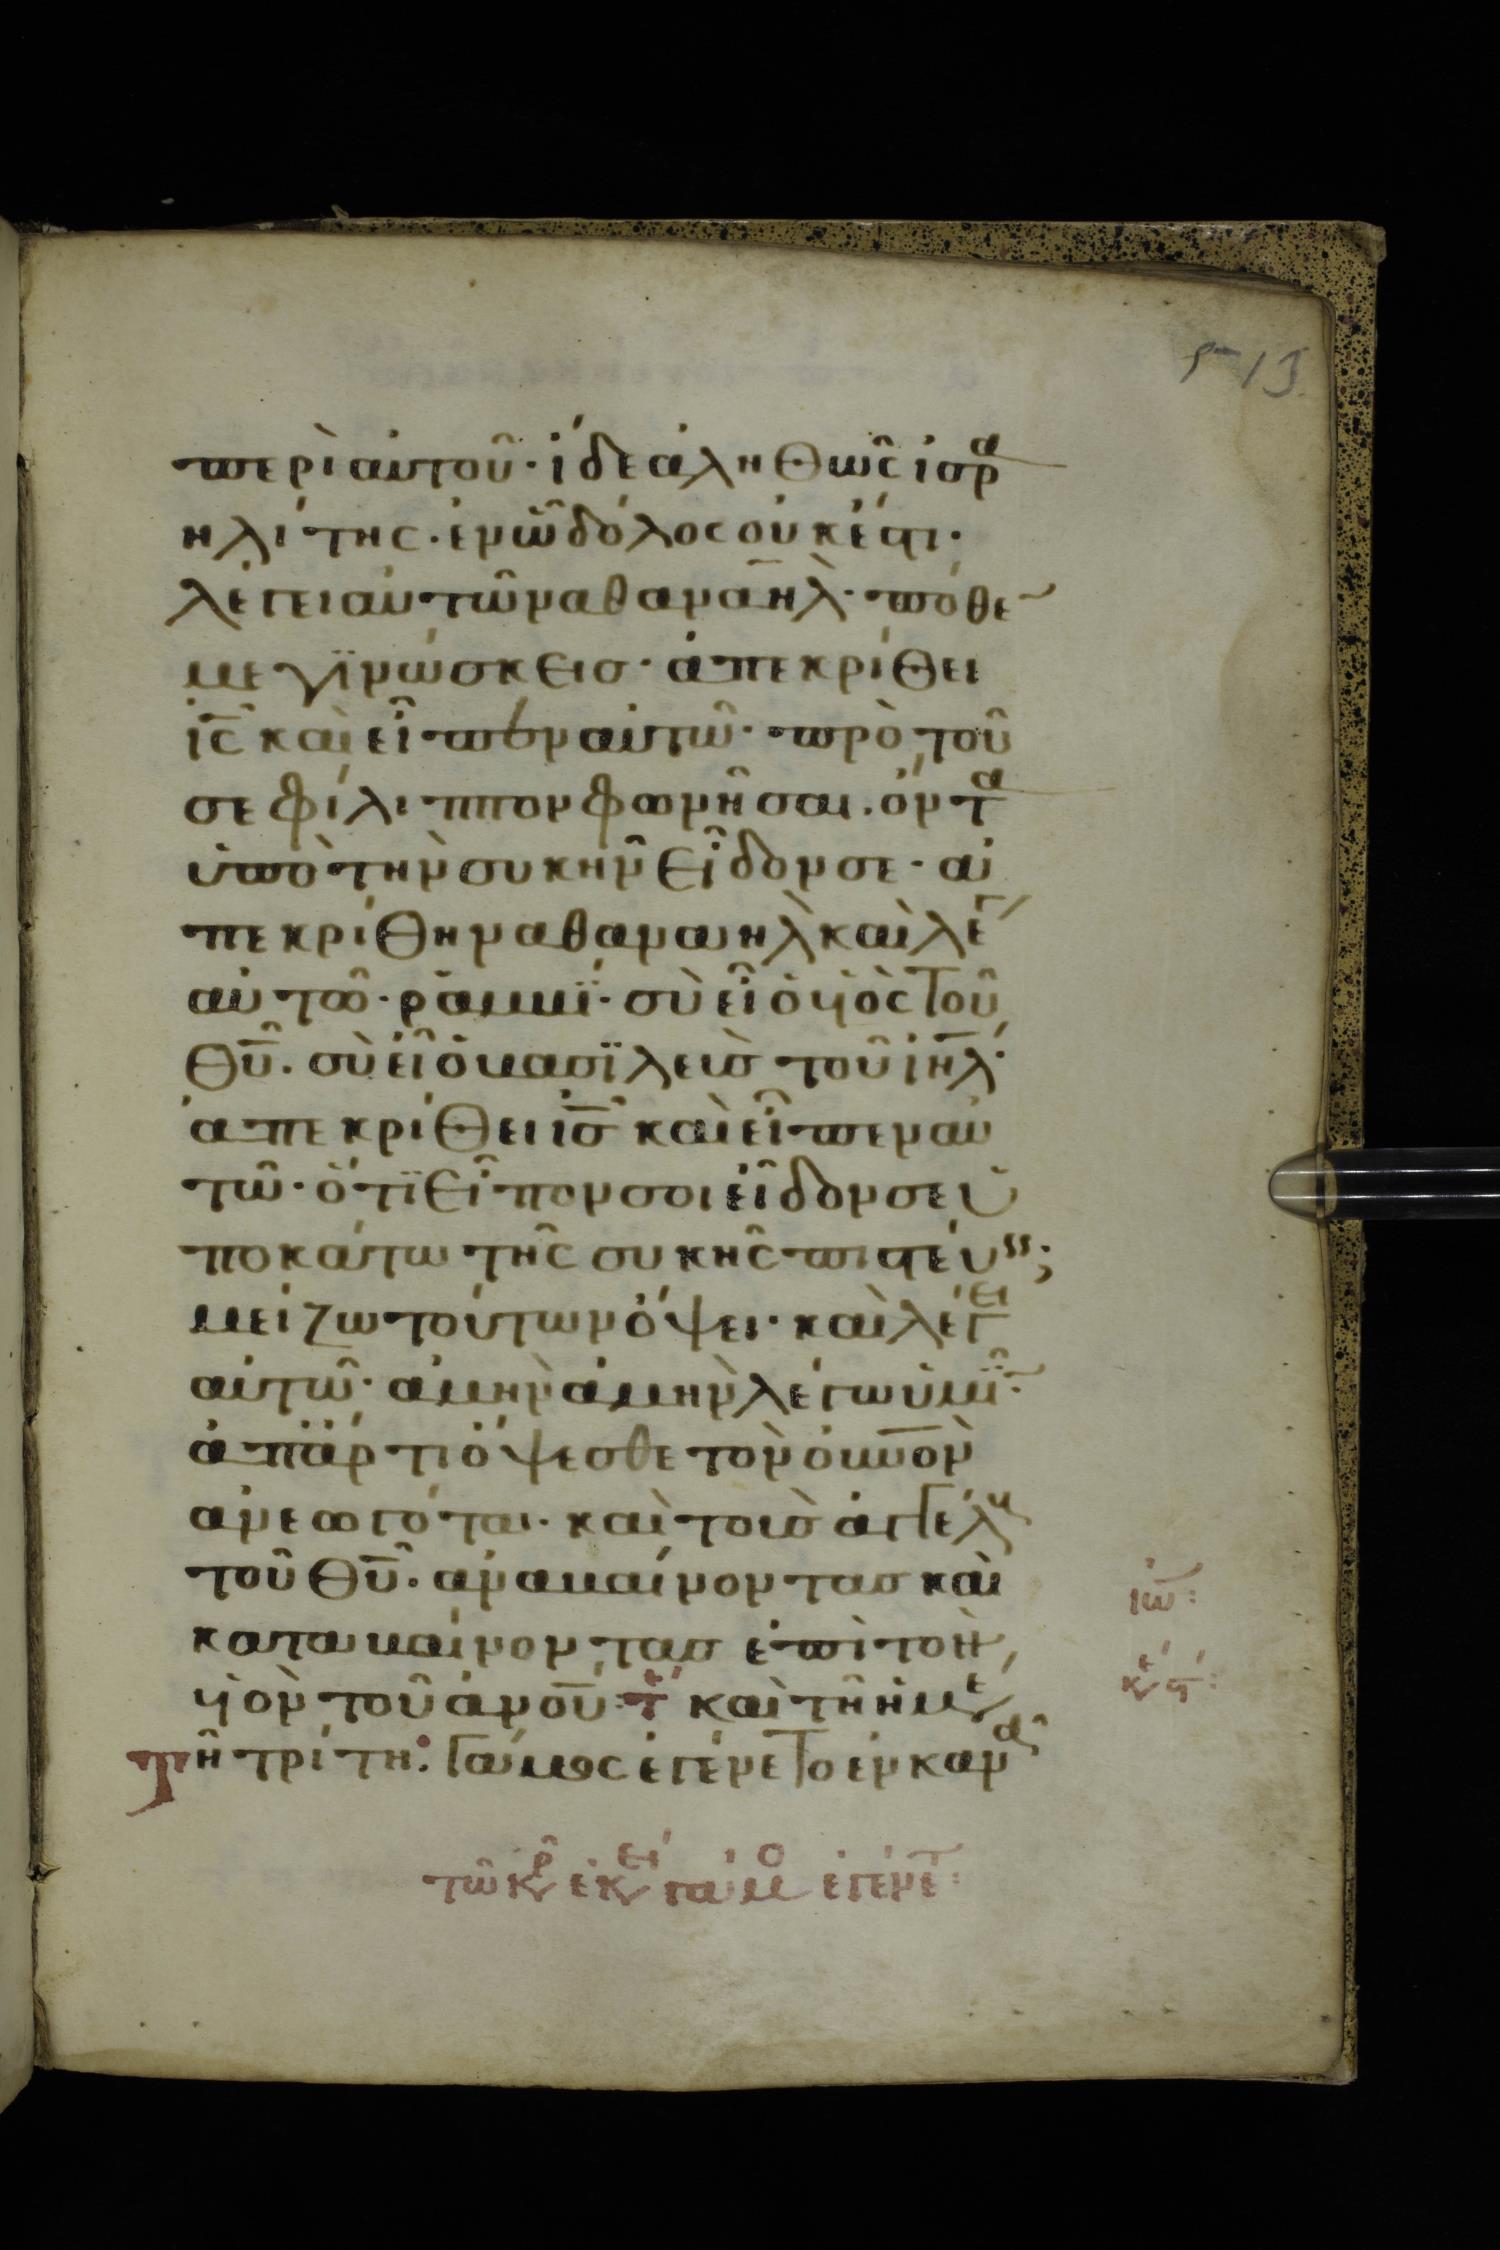 13
περὶ αυτοῦ· ἰδε ἀληθῶς ἰσρα
ηλίτης· ἐν ᾧ δόλος οὐκ ἔστι·
λέγει αὐτῶ ναθαναηλ· πόθε
με γϊνώσκεισ· ἀπεκρίθει
ις καὶ εἶπον αὐτῶ· πρὸ τοῦ
σε φίλιππον φωνῆσαι· ὄντα
ὑπὸ τὴν συκῆν εἶδον σε· ἀ
πεκρίθη ναθαναηλ καὶ λέγ
αὐτῶ· ράββί· σὺ εἶ ὁ υἱὸς τοῦ
θυ· σὺ εἶ ὁ βασϊλεὺσ τοῦ ιηλ·
ἀπεκρίθει ισ καὶ εἶπεν αὐ
τῶ· ὅτϊ εἶπον σοι εἶδον σε ὑ
ποκάτω τῆς συκῆς πιστεύεις;
μείζω τούτων ὄψει· καὶ λέγει
αὐτῶ· ἀμὴν ἀμὴν λέγω ὑμῖ
ἀπάρτι ὄψεσθε τὸν ουνον
ἀνεωγόται· καὶ τοὺσ ἀγγέλους
τοῦ θυ· ἀναβαίνοντασ καὶ
καταβαίνοντασ ἐπὶ τον
υἱὸν τοῦ ἀνου: τ καὶ τῆ ἡμε
Τῆ τρίτη: γάμος ἐγένετο ἐν κανα
ιω:
τῶ κρ ἐκει γάμο ἐγένετ: